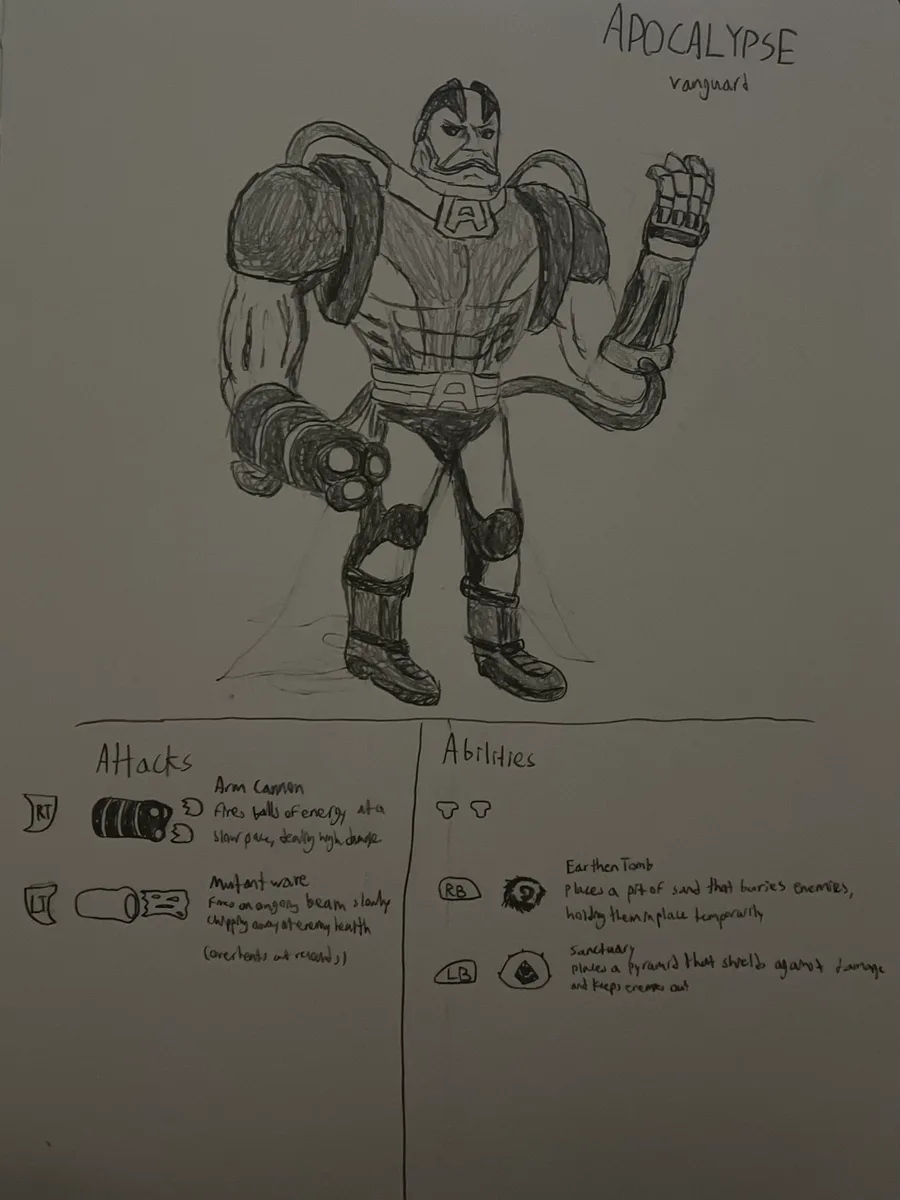 APOCALYPSE
vanguard
A
A
Attacks
RT
Arm Cannon
fires balls of energy at a
slow pace, dealing high damage
LT
Mutant ware
Fires an ongoing beam slowly
chipping away at enemy health
(overheats not reloads)
Abilities
RB
Earthen Tomb
places a pit of sand that burries enemies,
holding them in place temporarily
LB
Sanctuary
places a pyramid that shields against damage
and keeps enemies out